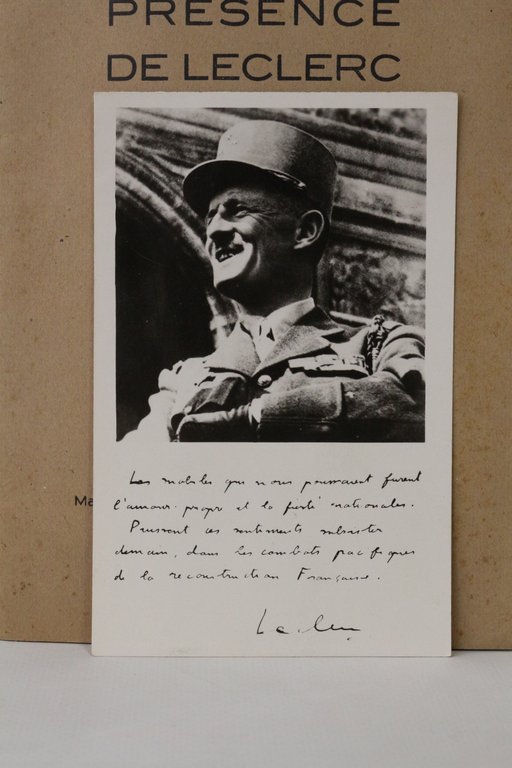 PRESENCE
DE LECLERC
Ma
Les mobiles qui nous poussaient furent
l'amour-propre et la fierté nationales.
Puissent ces sentiments subsister
demain, dans les combats pacifiques
de la reconstruction Française.
Leclerc